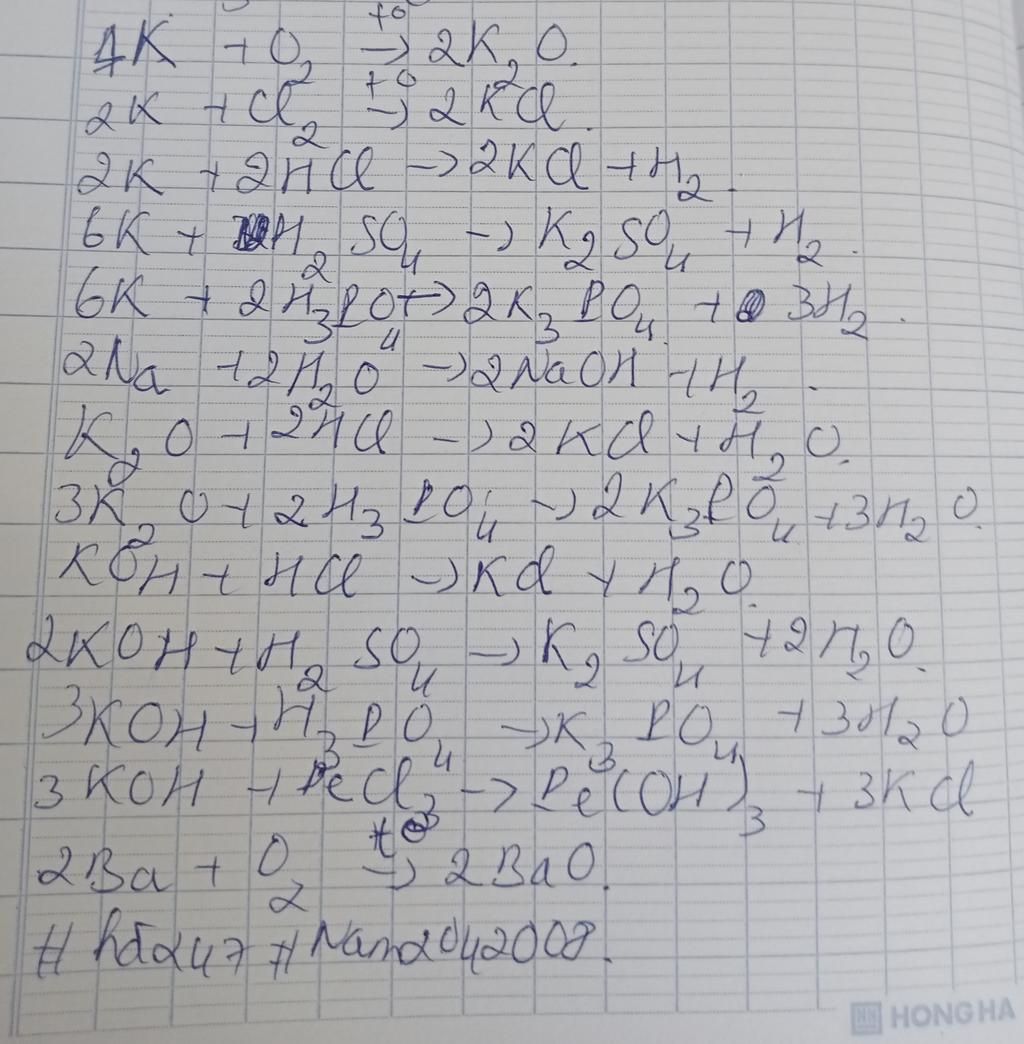 4K + O₂ →(t⁰) 2K₂O.
2K + Cl₂ →(t⁰) 2KCl.
2K + 2HCl → 2KCl + H₂.
6K + H₂SO₄ → K₂SO₄ + H₂.
6K + 2H₃PO₄ → 2K₃PO₄ + 3H₂.
2Na + 2H₂O → 2NaOH + H₂.
K₂O + 2HCl → 2KCl + H₂O.
3K₂O + 2H₃PO₄ → 2K₃PO₄ + 3H₂O.
KOH + HCl → KCl + H₂O.
2KOH + H₂SO₄ → K₂SO₄ + 2H₂O.
3KOH + H₃PO₄ → K₃PO₄ + 3H₂O
3KOH + FeCl₃ → Fe(OH)₃ + 3KCl
2Ba + O₂ →(t⁰) 2BaO.
#Nam2042008.
HONG HA